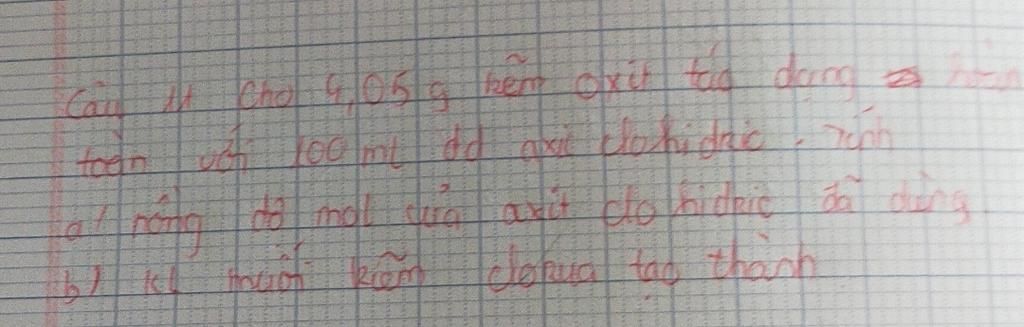 Câu 4 Cho 4,05 g kẽm oxit tác dụng hoàn
toàn với 100 ml dd axit clohidric. Tính
a/ nồng độ mol của axit clo hidric đã dùng
b) KL muối kẽm clorua tạo thành